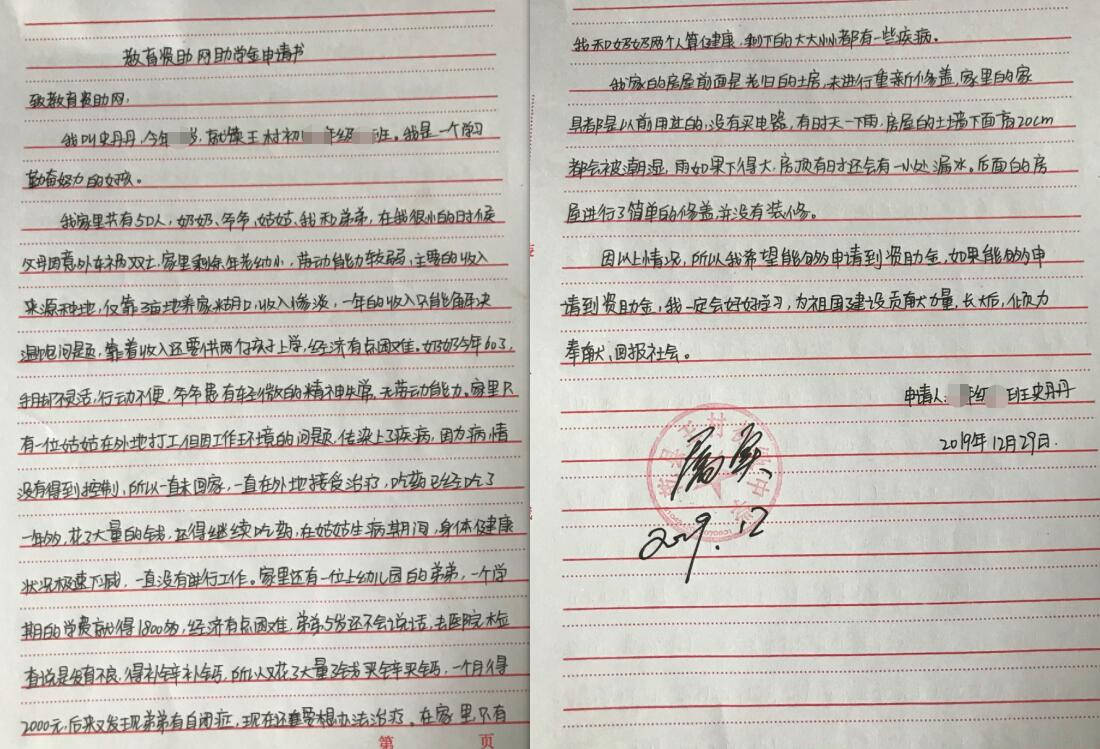 教育资助网助学金申请书
致教育资助网：
我叫史丹丹，今年 岁，就读王村初 年级 班。我是一个学习
勤奋努力的女孩。
我家里共有5口人，奶奶、爷爷、姑姑、我和弟弟，在我很小的时候
父母因意外车祸双亡，家里剩余年老幼小，劳动能力较弱，主要的收入
来源种地，仅靠3亩地养家糊口，收入惨淡，一年的收入只能解决
温饱问题，靠着收入还要供两个孩子上学，经济有点困难。奶奶今年60了，
手脚不灵活，行动不便，爷爷患有轻微的精神失常，无劳动能力。家里只
有一位姑姑在外地打工但因工作环境的问题，传染上了疾病，因为病情
没有得到控制，所以一直未回家，一直在外地接受治疗，吃药已经吃了
一年多，花了大量的钱，还得继续吃药，在姑姑生病期间，身体健康
状况极速下减，一直没有进行工作。家里还有一位上幼儿园的弟弟，一个学
期的学费就得1800多，经济有点困难，弟弟5岁还不会说话，去医院检
查说是发育不良，得补锌补钙，所以又花了大量了钱买锌买钙，一个月得
2000元，后来又发现弟弟有自闭症，现在还要想办法治疗。在家里，只有
第 页
我和奶奶两个人算健康，剩下的大大小小都有一些疾病。
我家的房屋前面是老旧的土房，未进行重新修盖，家里的家
具都是以前用过的，没有买电器，有时天一下雨，房屋的土墙下面高20cm
都会被潮湿，雨如果下得大，房顶有时还会有一小处漏水。后面的房
屋进行了简单的修盖并没有装修。
因以上情况，所以我希望能够申请到资助金，如果能够申
请到资助金，我一定会好好学习，为祖国建设贡献力量，长大后，倾力
奉献，回报社会。
申请人： 班史丹丹
2019年12月29日.
2019.12